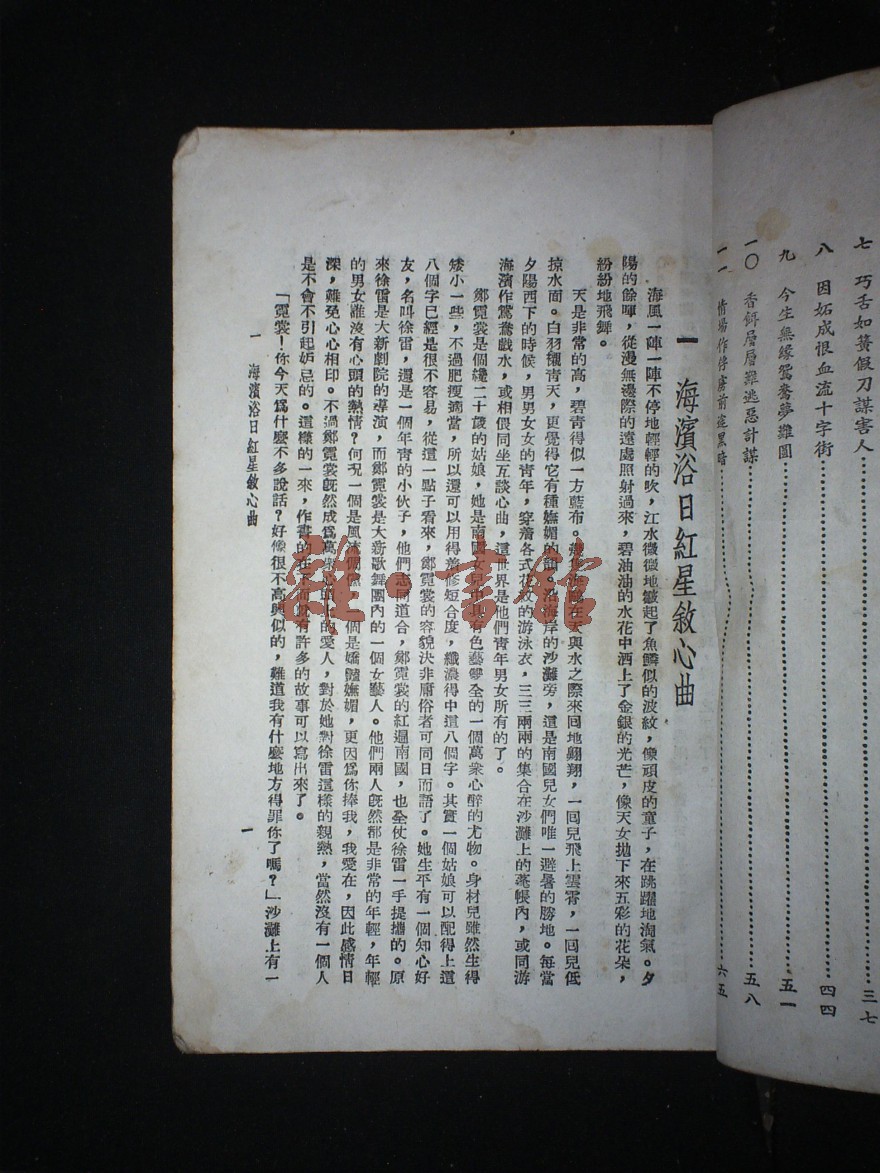 七　巧舌如簧假刀謀害人……三七
八　因妬成恨血流十字街……四四
九　今生無緣鴛鴦夢難圓……五一
一〇　香餌層層難逃惡計謀……五八
一一　情場作俘虜前途黑暗……六五
一　海濱浴日紅星敘心曲
海風一陣一陣不停地輕輕的吹，江水微微地皺起了魚鱗似的波紋，像頑皮的童子，在跳躍地淘氣。夕
陽的餘暉，從漫無邊際的遠處照射過來，碧油油的水花中洒上了金銀的光芒，像天女拋下來五彩的花朵，
紛紛地飛舞。
天是非常的高，碧青得似一方藍布。幾隻海鳥在天與水之際來回地翺翔，一回兒飛上雲霄，一回兒低
掠水面。白羽襯青天，更覺得它有種嫵媚的韻。沿海岸的沙灘旁，這是南國兒女們唯一避暑的勝地。每當
夕陽西下的時候，男男女女的青年，穿着各式花紋的游泳衣，三三兩兩的集合在沙灘上的蓬帳內，或同游
海濱作鴛鴦戲水，或相偎同坐互談心曲，這世界是他們青年男女所有的了。
鄭霓裳是個纔二十歲的姑娘，她是南國女兒中具有色藝雙全的一個萬衆心醉的尤物。身材兒雖然生得
矮小一些，不過肥瘦適當，所以還可以用得着修短合度，纖濃得中這八個字。其實一個姑娘可以配得上這
八個字已經是很不容易，從這一點子看來，鄭霓裳的容貌決非庸俗者可同日而語了。她生平有一個知心好
友，名叫徐雷，還是一個年青的小伙子，他們志同道合，鄭霓裳的紅遍南國，也全仗徐雷一手提攜的。原
來徐雷是大新劇院的導演，而鄭霓裳是大新歌舞團內的一個女藝人。他們兩人旣然都是非常的年輕，年輕
的男女誰沒有心頭的熱情？何况一個是風流倜儻，一個是嬌豔嫵媚，更因爲你捧我，我愛在，因此感情日
深，難免心心相印。不過鄭霓裳旣然成爲萬衆心的愛人，對於她對徐雷這樣的親熱，當然沒有一個人
是不會不引起妬忌的。這樣的一來，作書的在下面就有許多的故事可以寫出來了。
「霓裳！你今天爲什麼不多說話？好像很不高興似的，難道我有什麼地方得罪你了嗎？」沙灘上有一
一　海濱浴日紅星敘心曲
一
雜·書館